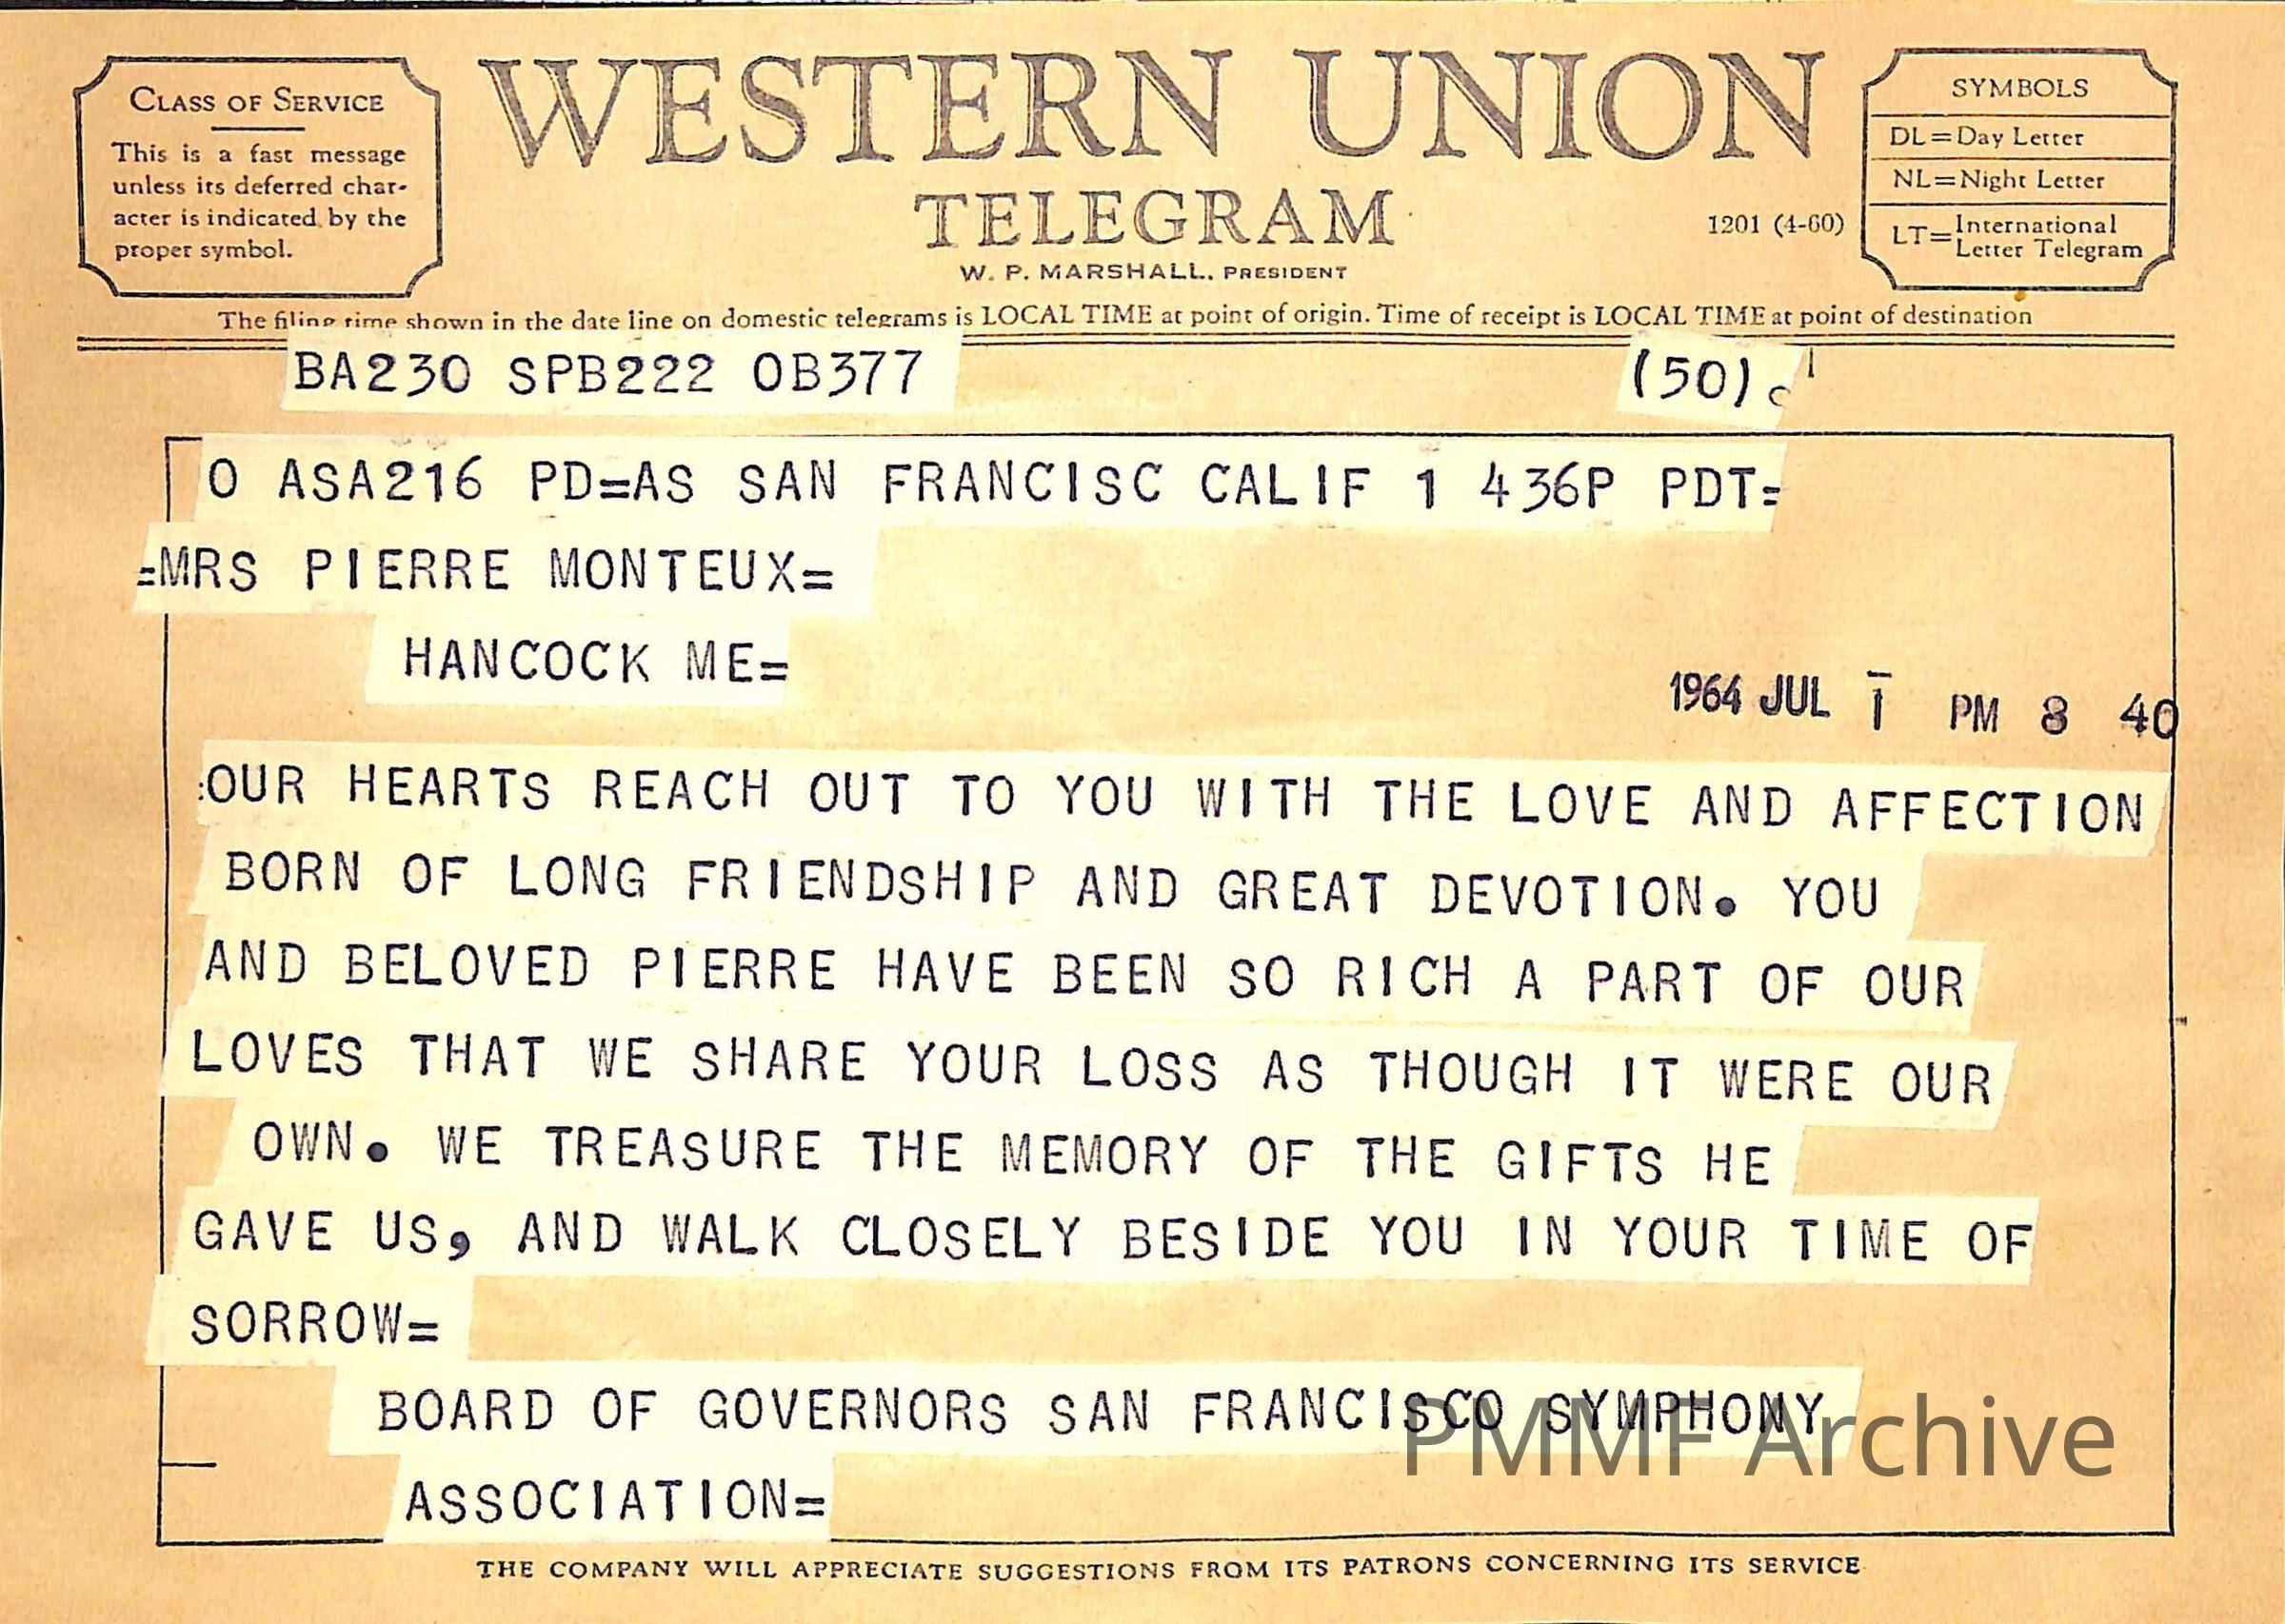 CLASS OF SERVICE
This is a fast message
unless its deferred char-
acter is indicated by the
proper symbol.
WESTERN UNION
TELEGRAM
W. P. MARSHALL, PRESIDENT
1201 (4-60)
SYMBOLS
DL=Day Letter
NL=Night Letter
LT=International Letter Telegram
The filing time shown in the date line on domestic telegrams is LOCAL TIME at point of origin. Time of receipt is LOCAL TIME at point of destination
BA230 SPB222 OB377 (50).
O ASA216 PD=AS SAN FRANCISC CALIF 1 436P PDT=
=MRS PIERRE MONTEUX=
HANCOCK ME=
1964 JUL 1 PM 8 40
:OUR HEARTS REACH OUT TO YOU WITH THE LOVE AND AFFECTION
BORN OF LONG FRIENDSHIP AND GREAT DEVOTION. YOU
AND BELOVED PIERRE HAVE BEEN SO RICH A PART OF OUR
LOVES THAT WE SHARE YOUR LOSS AS THOUGH IT WERE OUR
OWN. WE TREASURE THE MEMORY OF THE GIFTS HE
GAVE US, AND WALK CLOSELY BESIDE YOU IN YOUR TIME OF
SORROW=
BOARD OF GOVERNORS SAN FRANCISCO SYMPHONY
ASSOCIATION=
PMMF Archive
THE COMPANY WILL APPRECIATE SUGGESTIONS FROM ITS PATRONS CONCERNING ITS SERVICE